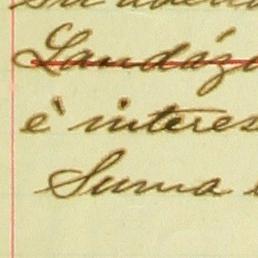 Landáz
è interes
Suma